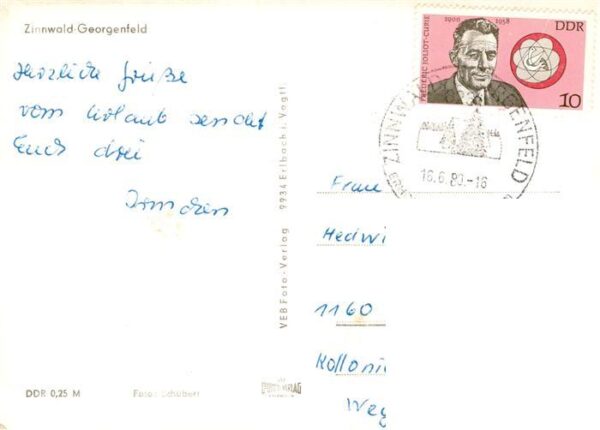 Zinnwald-Georgenfeld
Herzliche Grüße
vom Urlaub sendet
Euch drei
VEB Foto-Verlag 9934 Erlbach i. Vogtl.
DDR 0,25 M
Foto: Schubert
1900 1958
DDR
FRÉDÉRIC JOLIOT-CURIE
10
ZINNWALD-GEORGENFELD
16.6.80.-16
Fraue
Hedwi
1160
Kollonie
Weg